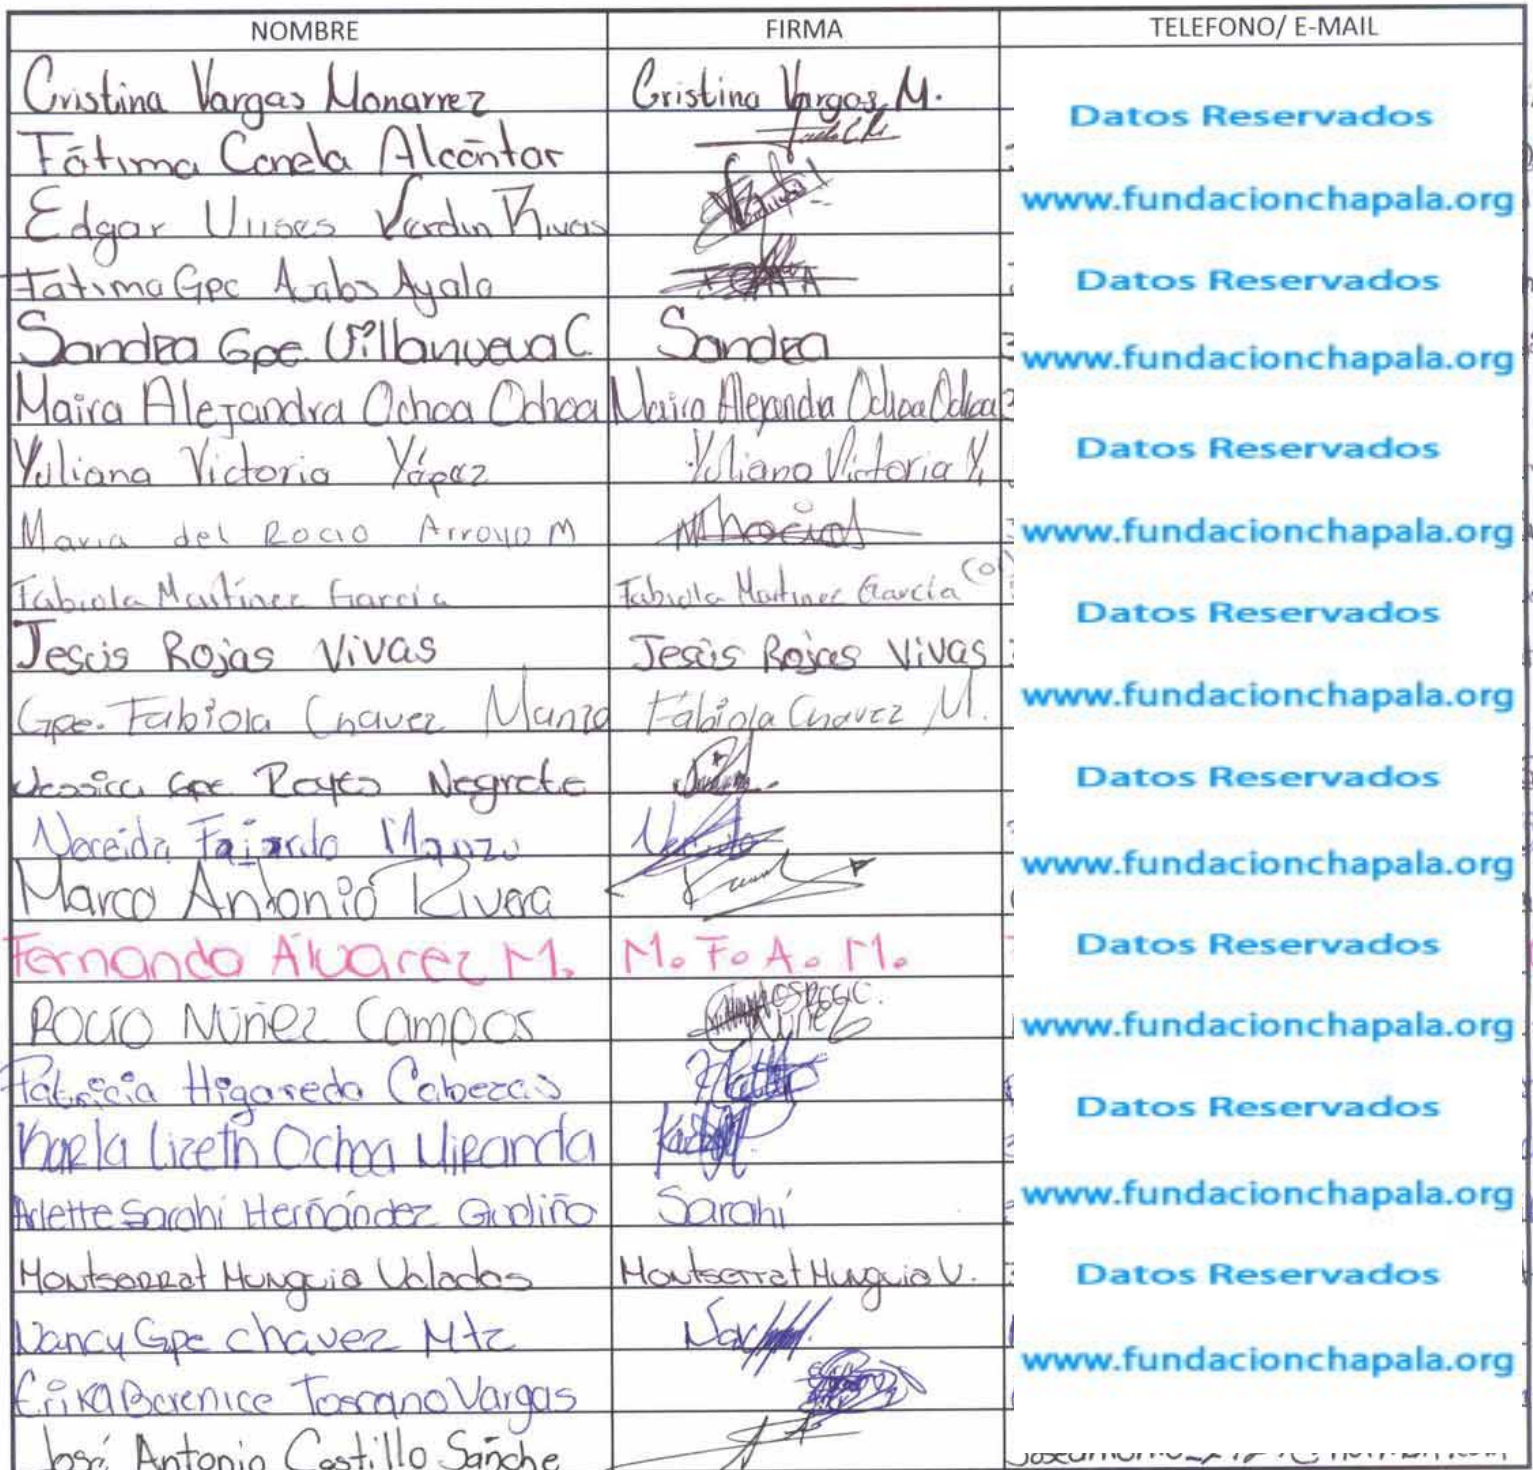 NOMBRE FIRMA TELEFONO/ E-MAIL
Cristina Vargas Monarrez Cristina Vargas M.
Datos Reservados
Fátima Canela Alcántar
www.fundacionchapala.org
Edgar Verdin Rivas
Fatima Gpe Ayala
Datos Reservados
Sandra Gpe Villanueva C. Sandra
www.fundacionchapala.org
Maira Alejandra Ochoa Ochoa Maira Alejandra Ochoa Ochoa
Datos Reservados
Yuliana Victoria Yápez Yuliana Victoria Y.
Maria del Rocio Arroyo M
www.fundacionchapala.org
Fabiola Martínez García Fabiola Martinez García
Datos Reservados
Jesús Rojas Vivas Jesús Rojas Vivas
Gpe. Fabiola Chavez Manzo Fabiola Chavez M.
www.fundacionchapala.org
Jessica Gpe Reyes Negrete
Datos Reservados
Nereida Fajardo Manzo
www.fundacionchapala.org
Marco Antonio Rivera
Fernando Álvarez M. M. F. A. M.
Datos Reservados
Rocío Núñez Campos
www.fundacionchapala.org
Patricia Higareda Cabezas
Datos Reservados
Karla Lizeth Ochoa Miranda
Arlette Sarahi Hernández Gudiño Sarahí
www.fundacionchapala.org
Montserrat Munguia Valados Montserrat Munguia V.
Datos Reservados
Nancy Gpe chavez Mtz
www.fundacionchapala.org
Erika Berenice Toscano Vargas
José Antonio Castillo Sánche